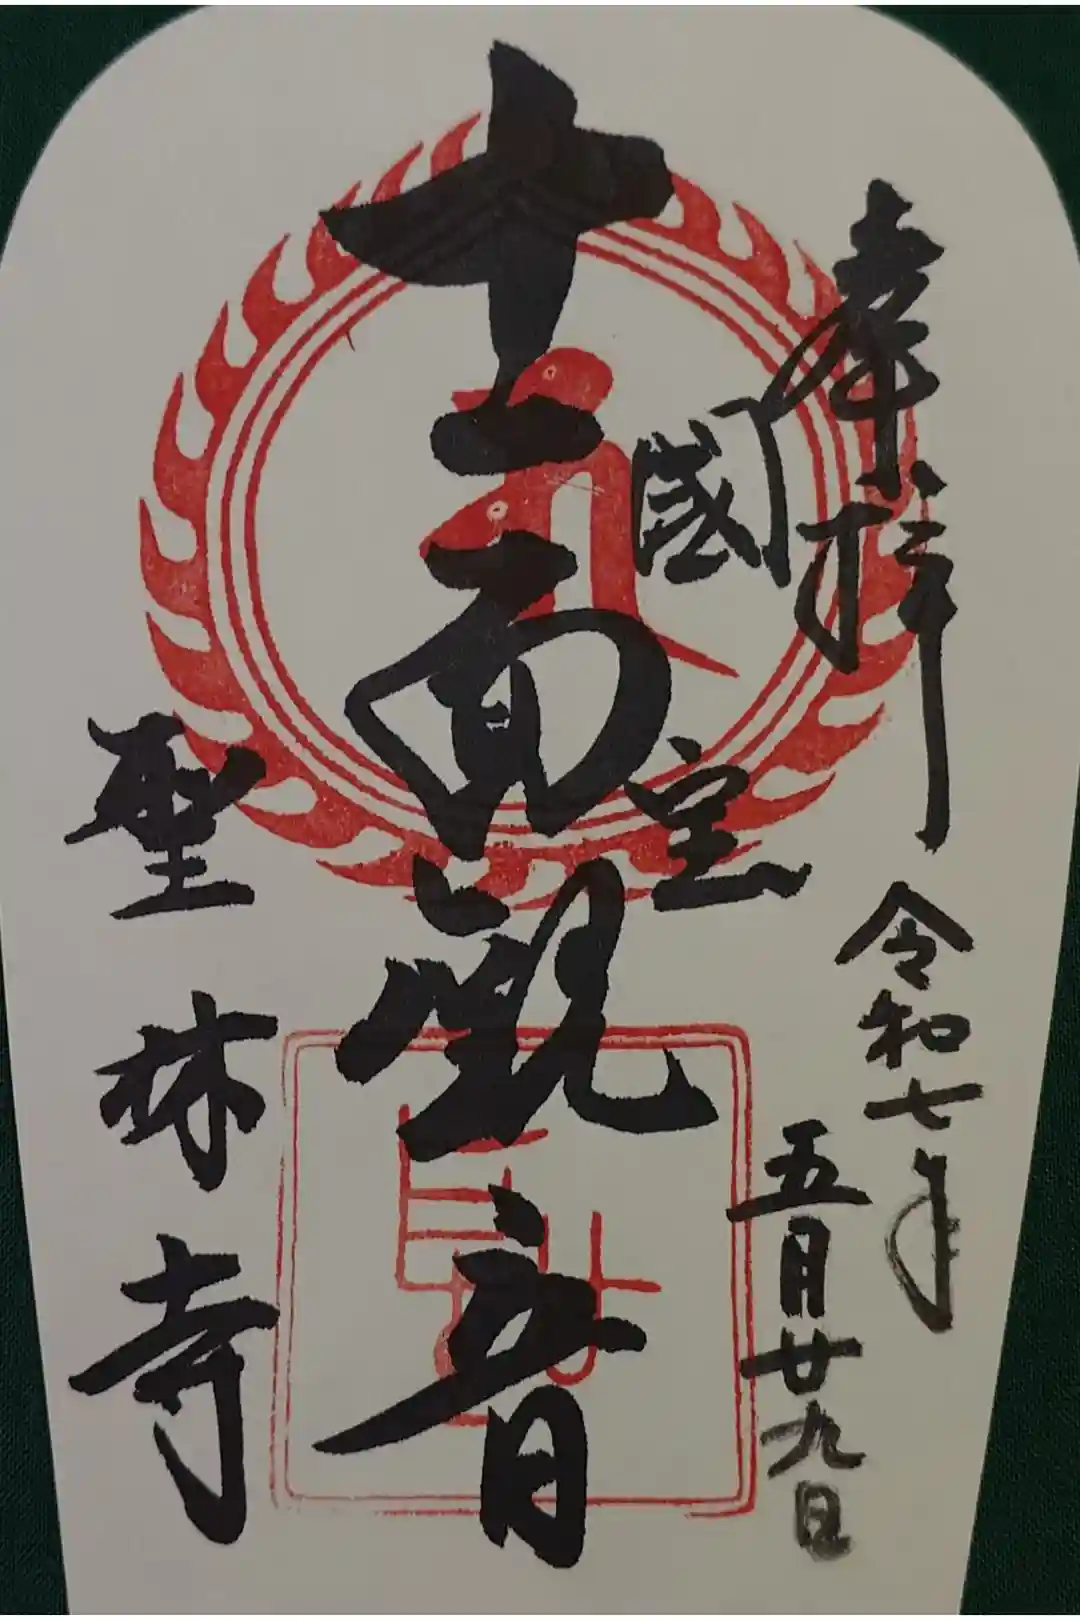 奉拝
令和七年
五月廿九日
國宝
十一面観音
聖林寺